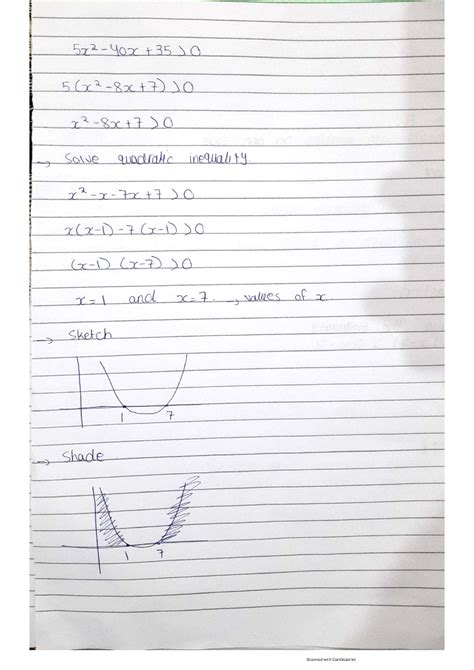 5x² - 40x + 35 > 0
5(x² - 8x + 7) > 0
x² - 8x + 7 > 0
→ Solve quadratic inequality.
x² - x - 7x + 7 > 0
x(x-1) - 7(x-1) > 0
(x-1) (x-7) > 0
x = 1 and x = 7. → values of x
→ Sketch
1 7
→ Shade
1 7
Scanned with CamScanner